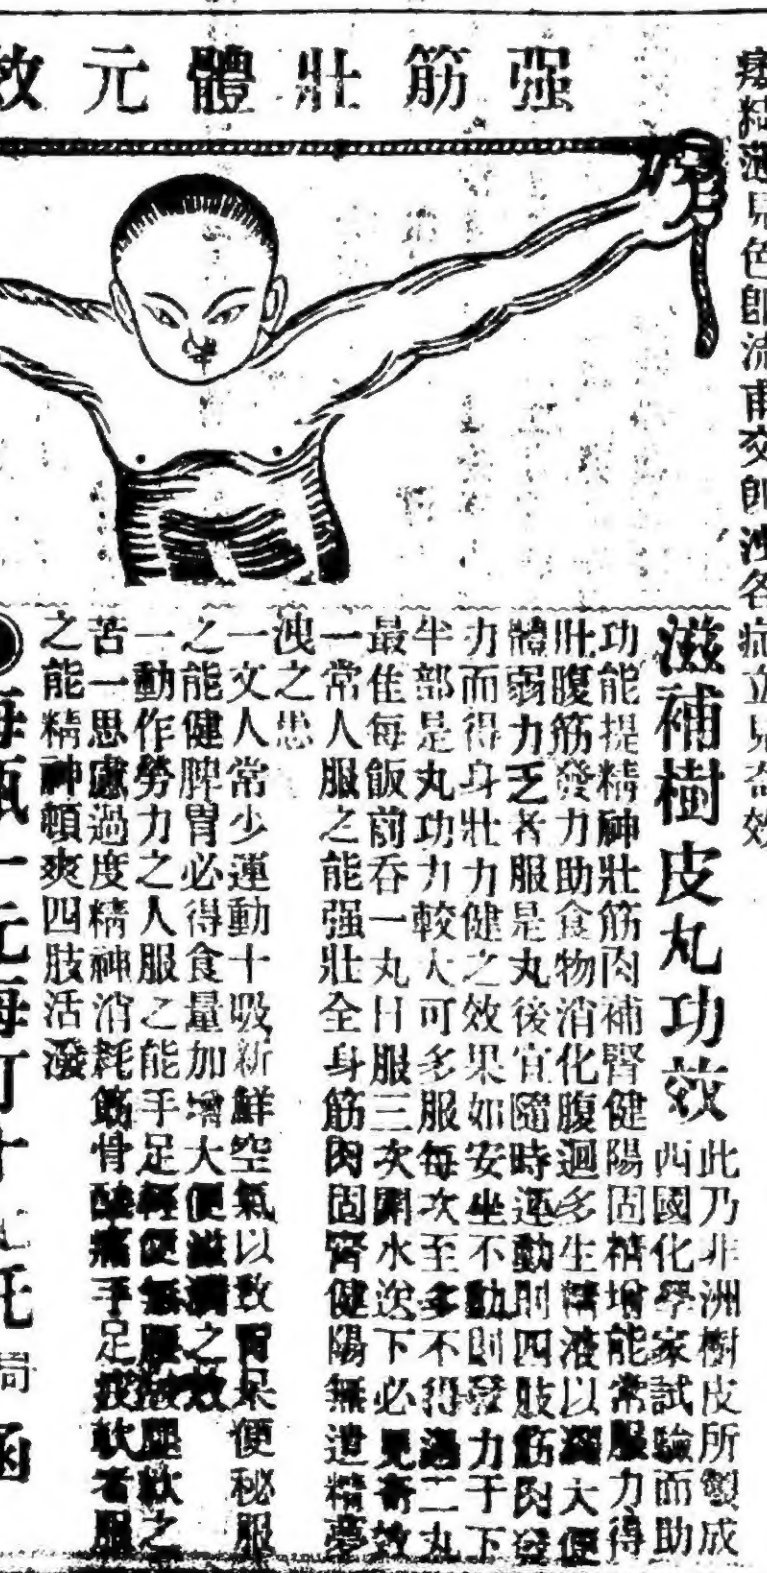 强筋壯體元效
痿精薄見色即流甫交即洩各症立見奇效
滋補樹皮丸功效
此乃非洲樹皮所製成
西國化學家試驗而助
功能提精神壯筋肉補腎健陽固精增能常服力得
壯腹筋發力助食物消化腹迴多生精液以潤大便
體弱力乏者服是丸後宜隨時運動則四肢筋肉發
力而得身壯力健之效果如安坐不動則發力于下
半部是丸功力較大可多服每次至多不得過二丸
最佳每飯前吞一丸日服三次開水送下必見奇效
一常人服之能强壯全身筋肉固腎健陽無遺精夢
洩之患
一文人常少運動十吸新鮮空氣以致胃呆便秘服
之能健脾胃必得食量加增大便滋潤之效
一動作勞力之人服之能手足輕便無腰酸腿軟之
苦一思慮過度精神消耗筋骨酸痛手足疲軟者服
之能精神頓爽四肢活潑
每瓶一元每打十元